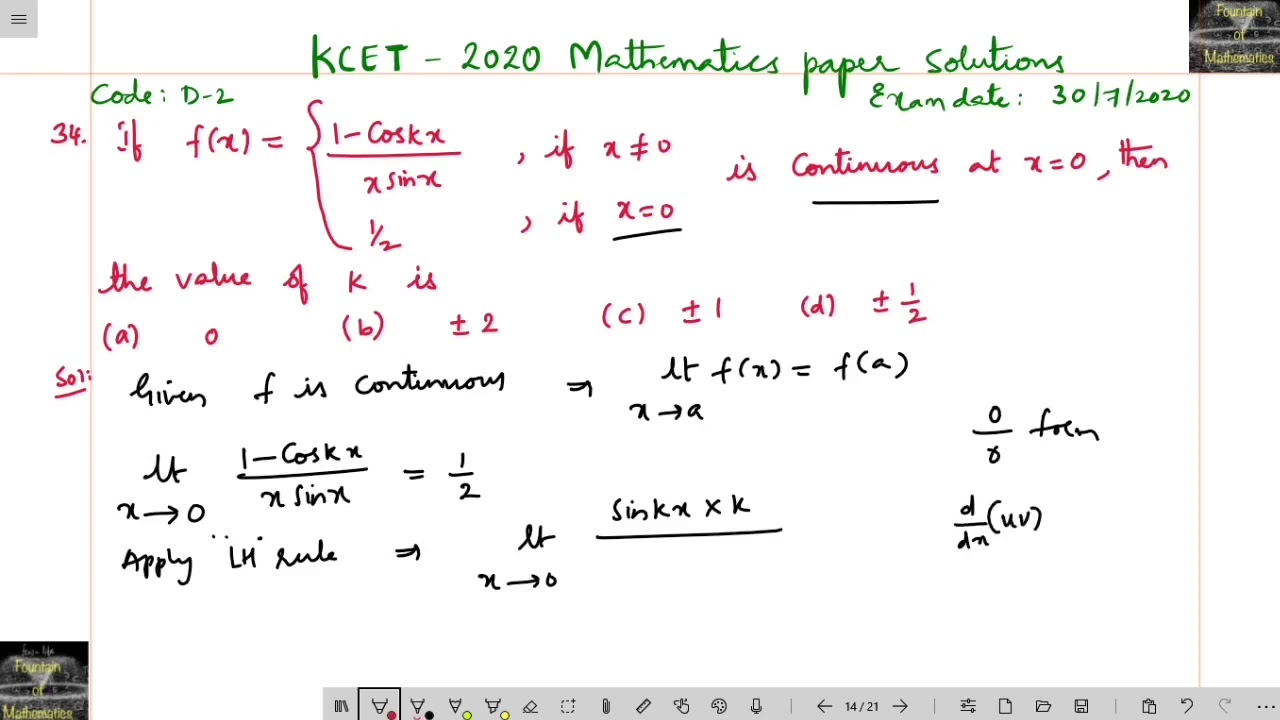 Fountain
of
Mathematics
KCET - 2020 Mathematics paper Solutions
Code: D-2
Exam date: 30/7/2020
34. If f(x) = { 1-Coskx / x sinx , if x ≠ 0
1/2 , if x = 0
is Continuous at x=0, then
the value of k is
(a) 0 (b) ± 2 (c) ± 1 (d) ± 1/2
Sol: Given f is continuous ⇒ lt f(x) = f(a)
x → a
0/0 form
lt 1-Coskx / x sinx = 1/2
x → 0
Apply "LH" rule ⇒ lt sinkx × k
x → 0
d/dx (uv)
Fountain
of
Mathematics
14 / 21